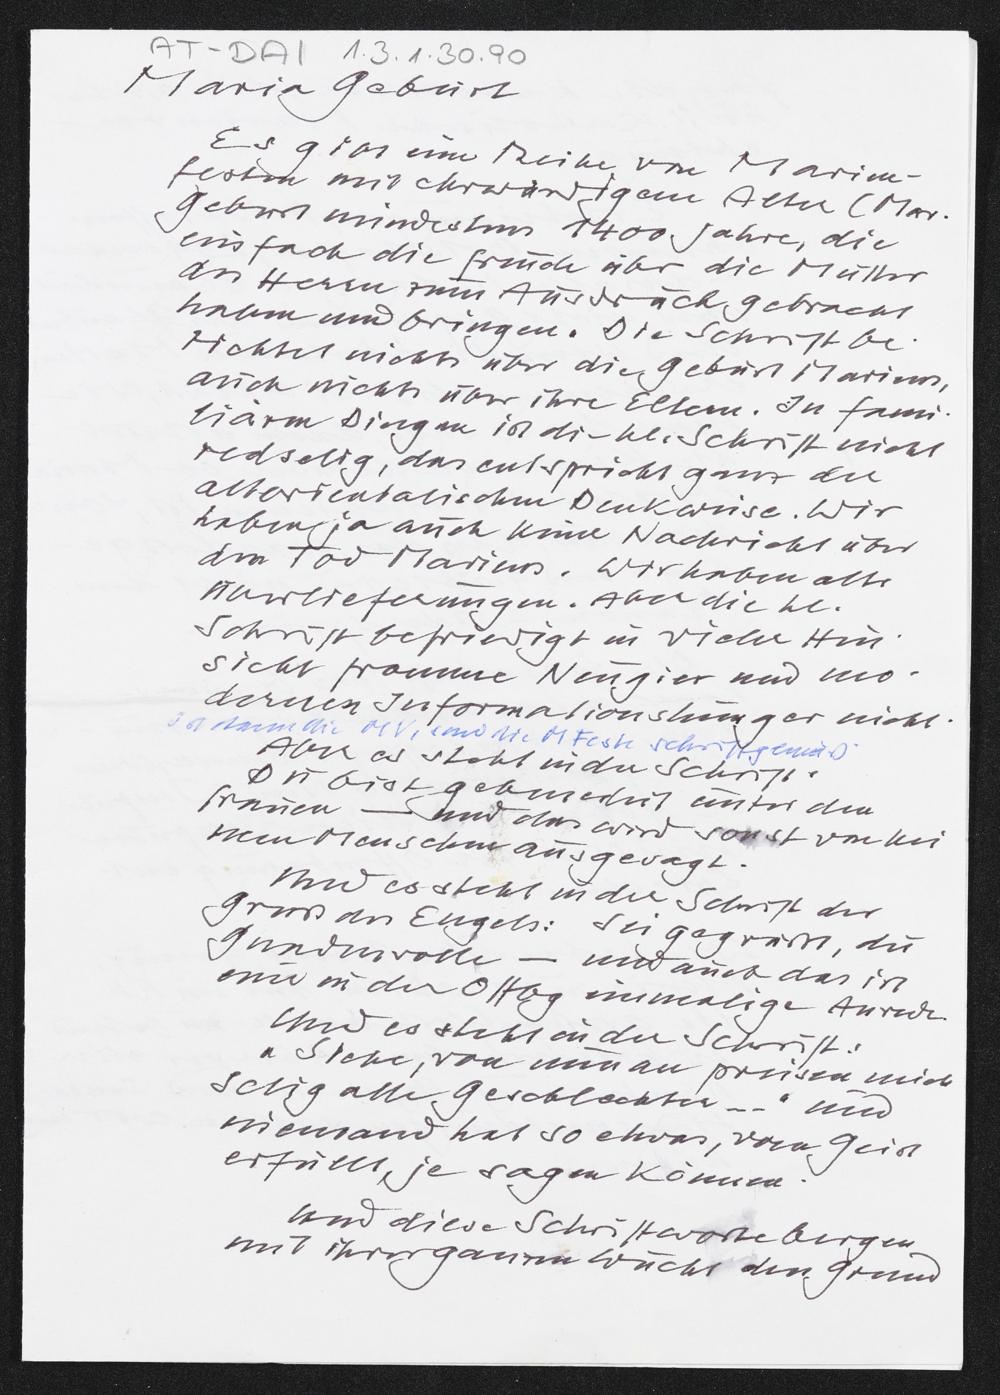 AT-DAI 1.3.1.30.90
Maria Geburt
Es gibt eine Reihe von Marien-
festen mit ehrwürdigem Alter (Mar.
Geburt mindestens 1400 Jahre, die
einfach die Freude über die Mutter
des Herrn zum Ausdruck gebracht
haben und bringen. Die Schrift be-
richtet nichts über die Geburt Mariens,
auch nichts über ihre Eltern. In fami-
liären Dingen ist die hl. Schrift nicht
redselig, das entspricht ganz der
altorientalischen Denkweise. Wir
haben ja auch keine Nachricht über
den Tod Mariens. Wir haben alte
Überlieferungen. Aber die hl.
Schrift befriedigt in vieler Hin-
sicht fromme Neugier und mo-
dernen Informationshunger nicht.
Ist dann die MV, sind die MFeste schriftgemäß
Aber es steht in der Schrift:
Du bist gebenedeit unter den
Frauen — und das wird sonst von kei
nem Menschen ausgesagt.
Und es steht in der Schrift der
Gruß des Engels: Sei gegrüßt, du
Gnadenvolle — und auch das ist
eine in der Offbg einmalige Anrede.
Und es steht in der Schrift:
"Siehe, von nun an preisen mich
selig alle Geschlechter --" und
niemand hat so etwas, vom Geist
erfüllt, je sagen können.
Und diese Schriftworte bergen
mit ihrer ganzen Wucht den Grund